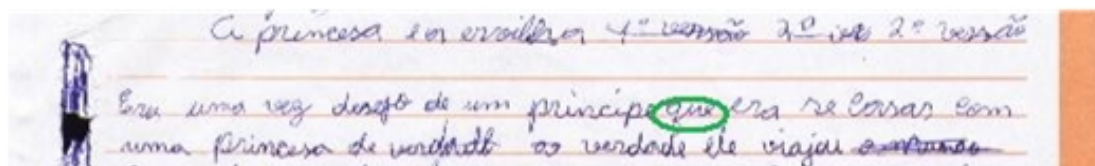 A princesa e a ervilha 4ª versão 2º 2ª versão
Era uma vez desejo de um príncipe que era se casar com
uma princesa de verdade verdade ele viajou o mundo